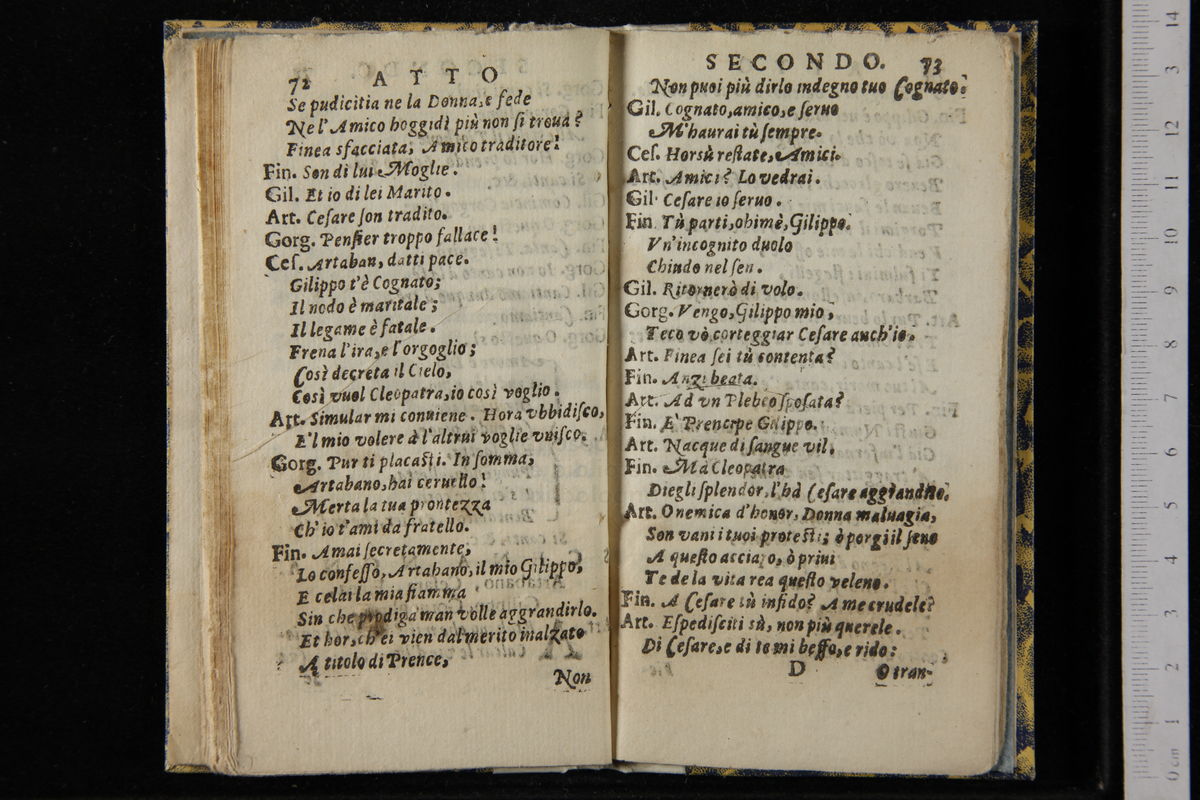 72 ATTO
Se pudicitia ne la Donna, e fede
Ne l'Amico hoggidì più non si troua?
Finea sfacciata, Amico traditore!
Fin. Son di lui Moglie.
Gil. Et io di lei Marito.
Art. Cesare son tradito.
Gorg. Pensier troppo fallace!
Ces. Artaban, datti pace.
Gilippo t'è Cognato;
Il nodo è maritale;
Il legame è fatale.
Frena l'ira, e l'orgoglio;
Così decreta il Cielo,
Così vuol Cleopatra, io così voglio.
Art. Simular mi conuiene. Hora vbbidisco,
E'l mio volere à l'altrui voglie vnisco.
Gorg. Pur ti placasti. In somma,
Artabano, hai ceruello!
Merta la tua prontezza
Ch'io t'ami da fratello.
Fin. Amai secretamente,
Lo confesso, Artabano, il mio Gilippo,
E celai la mia fiamma
Sin che prodiga man volle aggrandirlo.
Et hor, ch'ei vien dal merito inalzato
A titolo di Prence,
Non
SECONDO. 73
Non puoi più dirlo indegno tuo Cognato.
Gil. Cognato, amico, e seruo
M'haurai tù sempre.
Ces. Horsù restate, Amici.
Art. Amici? Lo vedrai.
Gil. Cesare io seruo.
Fin. Tù parti, ohimè, Gilippo.
Vn'incognito duolo
Chiudo nel sen.
Gil. Ritornerò di volo.
Gorg. Vengo, Gilippo mio,
Teco vò corteggiar Cesare anch'io.
Art. Finea sei tù contenta?
Fin. Anzi beata.
Art. Ad vn Plebeo sposata?
Fin. E' Prencipe Gilippo.
Art. Nacque di sangue vil.
Fin. Mà Cleopatra
Diegli splendor, l'hà Cesare aggrandito.
Art. O nemica d'honor, Donna maluagia,
Son vani i tuoi protesti; ò porgi il seno
A questo acciaro, ò priui
Te de la vita rea questo veleno.
Fin. A Cesare tù infido? A me crudele?
Art. Espedisciti sù, non più querele.
Di Cesare, e di te mi beffo, e rido:
D O tran-